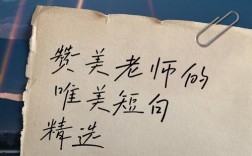 赞美老师的
唯美短句
精选